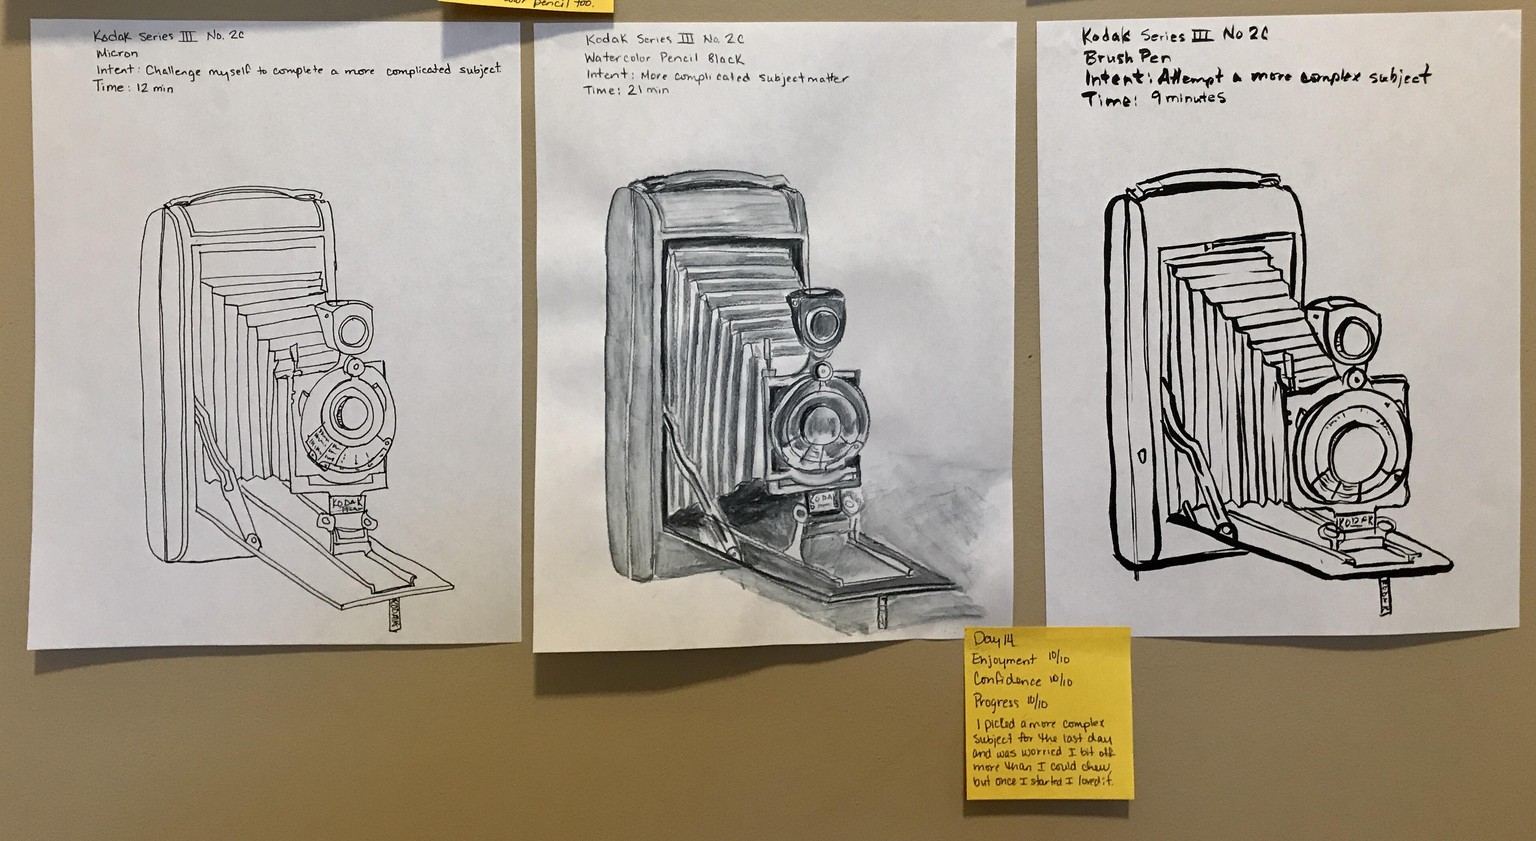 color pencil too.
Kodak Series III No. 2C
Micron
Intent: Challenge myself to complete a more complicated subject.
Time: 12 min
KODAK
KODAK
Kodak Series III No. 2C
Watercolor Pencil Black
Intent: More complicated subject matter
Time: 21 min
KODAK
Kodak Series III No 2C
Brush Pen
Intent: Attempt a more complex subject
Time: 9 minutes
KODAK
KODAK
Day 14
Enjoyment 10/10
Confidence 10/10
Progress 10/10
I picked a more complex
subject for the last day
and was worried I bit off
more than I could chew,
but once I started I loved it.